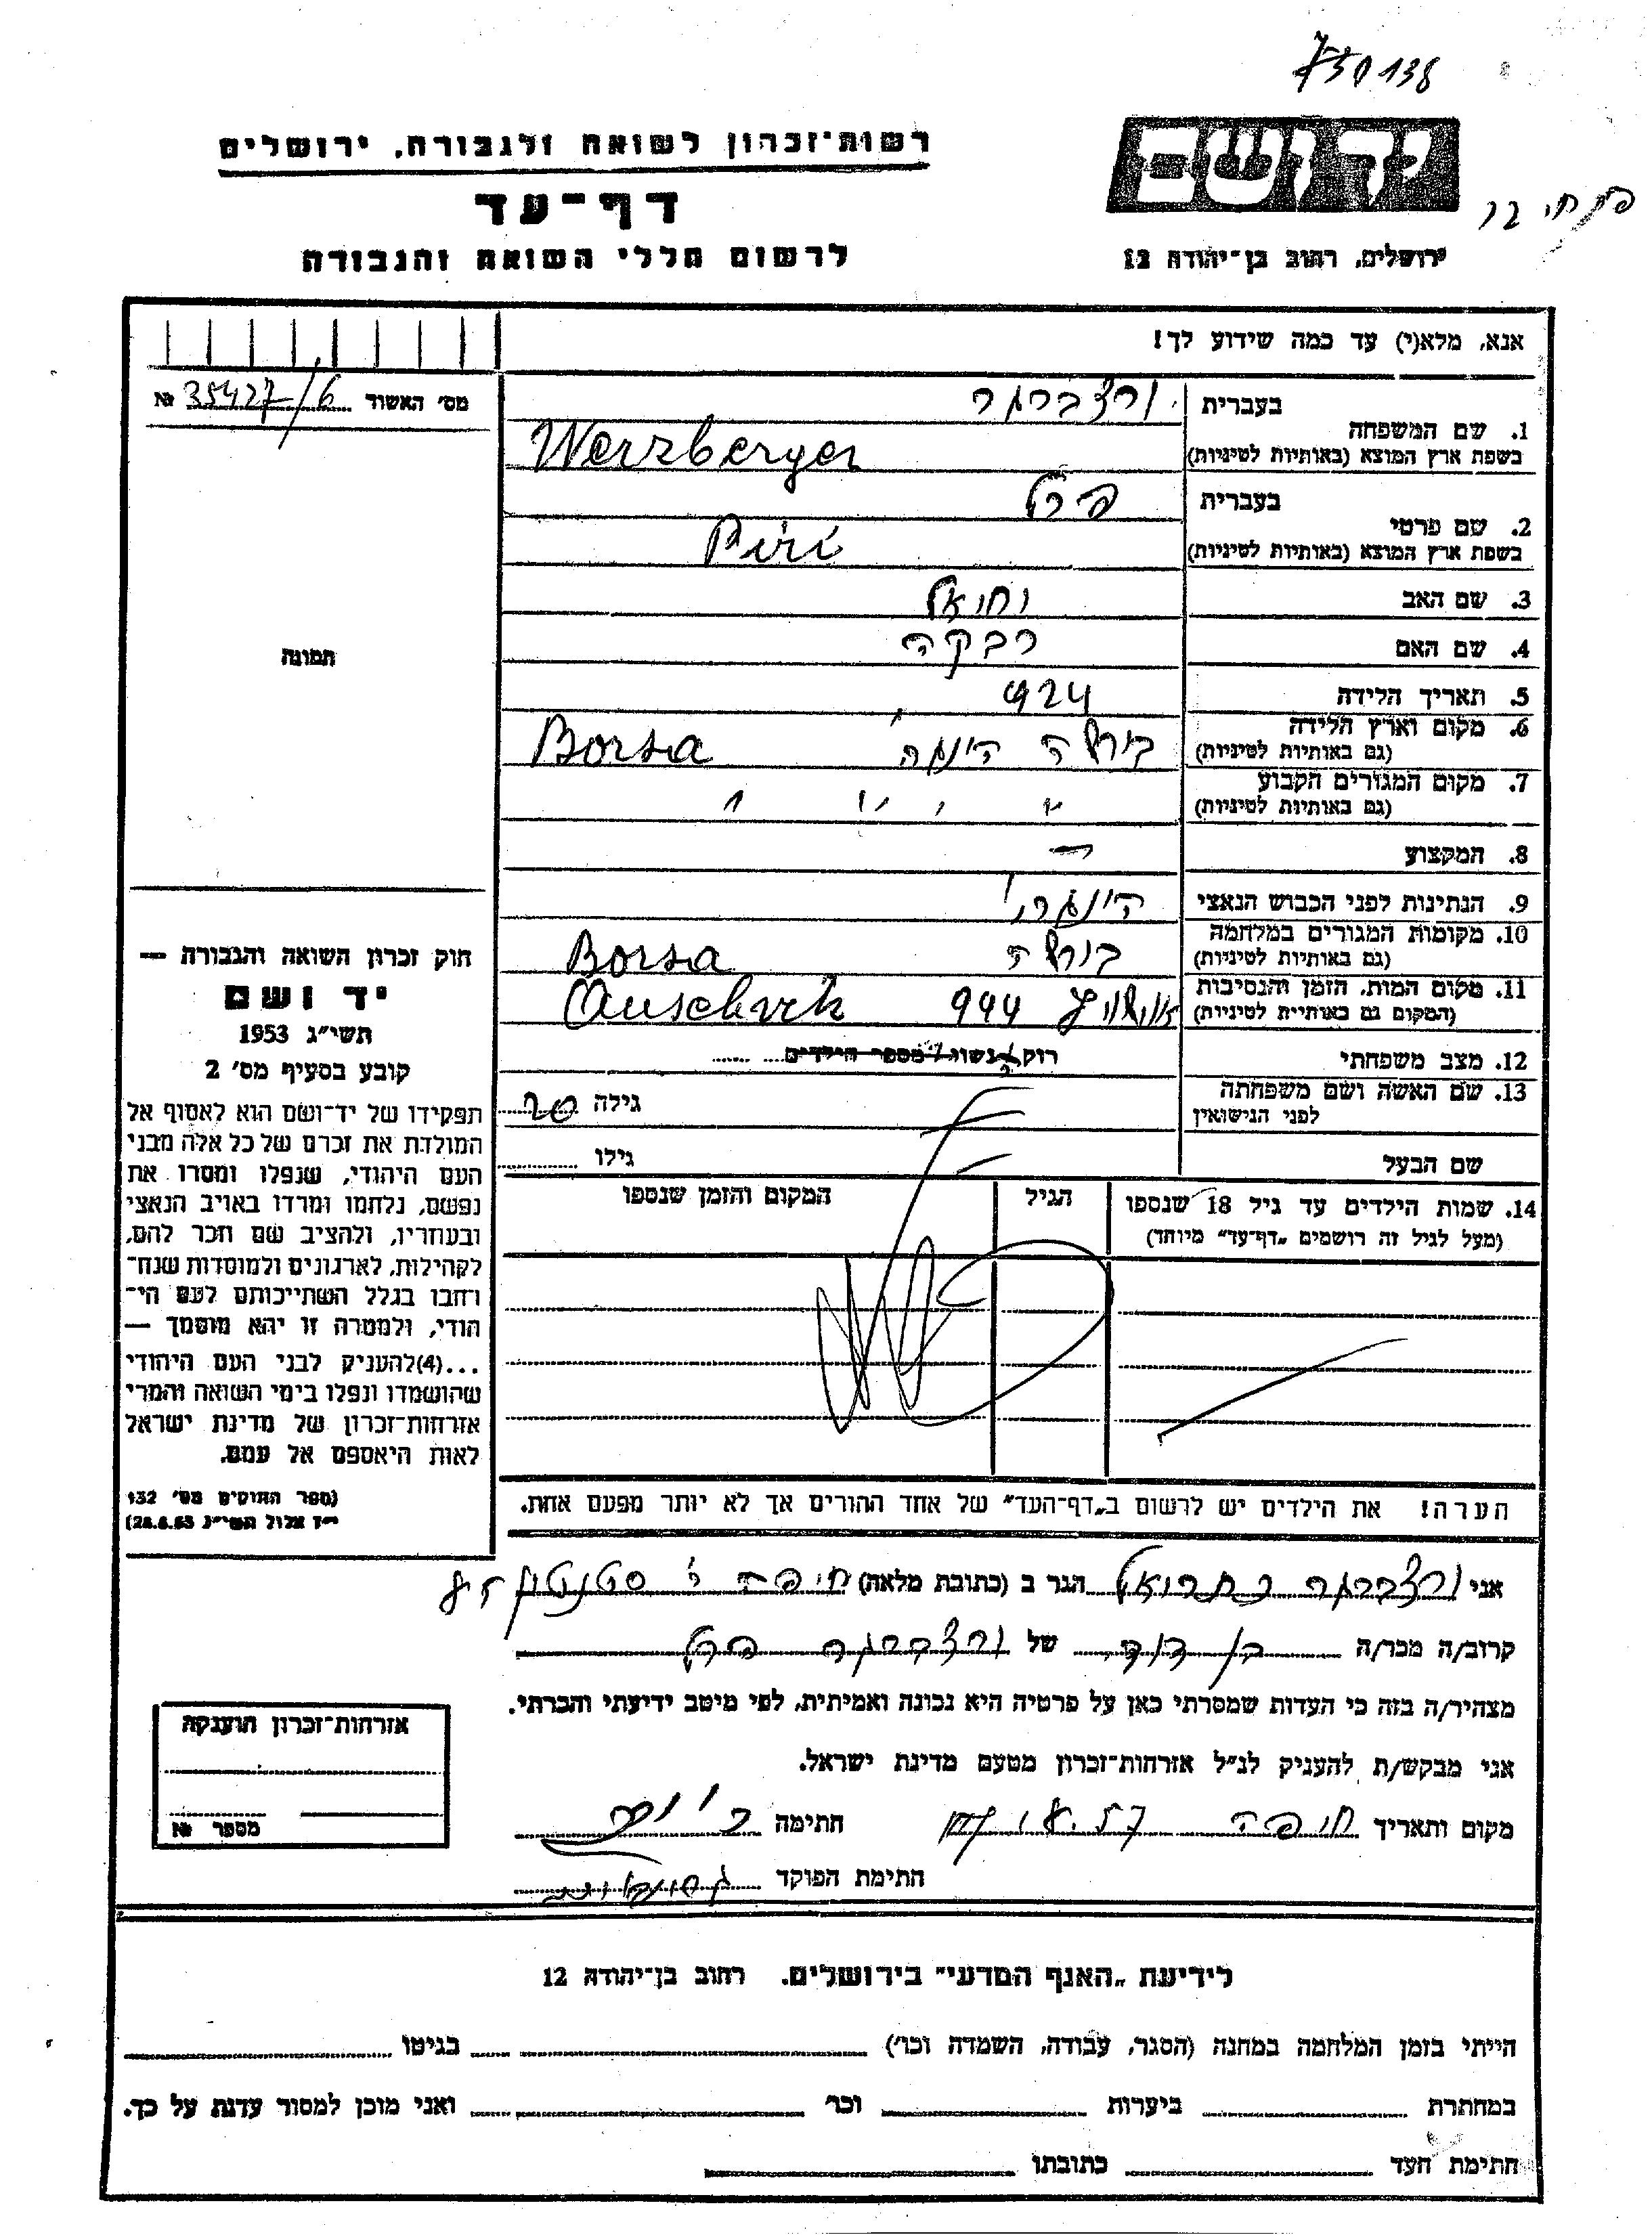 730138
רשות־זכרון לשואה ולגבורה, ירושלים
יד ושם
דף־עד
לרשום חללי השואה והגבורה
ירושלים, רחוב בן־יהודה 12
אנא, מלא(י) עד כמה שידוע לך!
מס׳ האשוד 35427/6 №
1. שם המשפחה
בעברית ורצברגר
בשפת ארץ המוצא (באותיות לטיניות) Werzberger
2. שם פרטי
בעברית פרל
בשפת ארץ המוצא (באותיות לטיניות) Piri
3. שם האב
4. שם האם רבקה
5. תאריך הלידה 924
6. מקום וארץ הלידה
(גם באותיות לטיניות) Borsa
7. מקום המגורים הקבוע
(גם באותיות לטיניות) " " " "
8. המקצוע —
9. הנתינות לפני הכבוש הנאצי
10. מקומות המגורים במלחמה
(גם באותיות לטיניות) Borsa
11. מקום המות, הזמן והנסיבות
(המקום גם באותיות לטיניות) 944
12. מצב משפחתי רוק נשוי מספר הילדים
13. שם האשה ושם משפחתה
לפני הנישואין
גילה 20
שם הבעל גילו
14. שמות הילדים עד גיל 18 שנספו
(מעל לגיל זה רושמים „דף־עד" מיוחד)
הגיל
המקום והזמן שנספו
הערה! את הילדים יש לרשום ב„דף־העד" של אחד ההורים אך לא יותר מפעם אחת.
תמונה
חוק זכרון השואה והגבורה —
יד ושם
תשי״ג 1953
קובע בסעיף מס׳ 2
תפקידו של יד־ושם הוא לאסוף אל
המולדת את זכרם של כל אלה מבני
העם היהודי, שנפלו ומסרו את
נפשם, נלחמו ומרדו באויב הנאצי
ובעוזריו, ולהציב שם וזכר להם,
לקהילות, לארגונים ולמוסדות שנח־
רבו בגלל השתייכותם לעם הי־
הודי, ולמטרה זו יהא מוסמך —
...(4)להעניק לבני העם היהודי
שהושמדו ונפלו בימי השואה והמרי
אזרחות־זכרון של מדינת ישראל
לאות היאספם אל עמם.
(ספר החוקים מס׳ 132
י״ז אלול תשי״ג 28.8.53)
אני ורצברגר הגר ב (כתובת מלאה) חיפה
קרוב/ה מכר/ה בן דוד של ורצברגר פרל
מצהיר/ה בזה כי העדות שמסרתי כאן על פרטיה היא נכונה ואמיתית, לפי מיטב ידיעתי והכרתי.
אני מבקש/ת להעניק לנ״ל אזרחות־זכרון מטעם מדינת ישראל.
מקום ותאריך חיפה חתימה
חתימת הפוקד
אזרחות־זכרון הוענקה
מספר №
לידיעת „האגף המדעי" בירושלים, רחוב בן־יהודה 12
הייתי בזמן המלחמה במחנה (הסגר, עבודה, השמדה וכו׳) בגיטו
במחתרת ביערות וכו׳ ואני מוכן למסור עדות על כך.
חתימת העד כתובתו